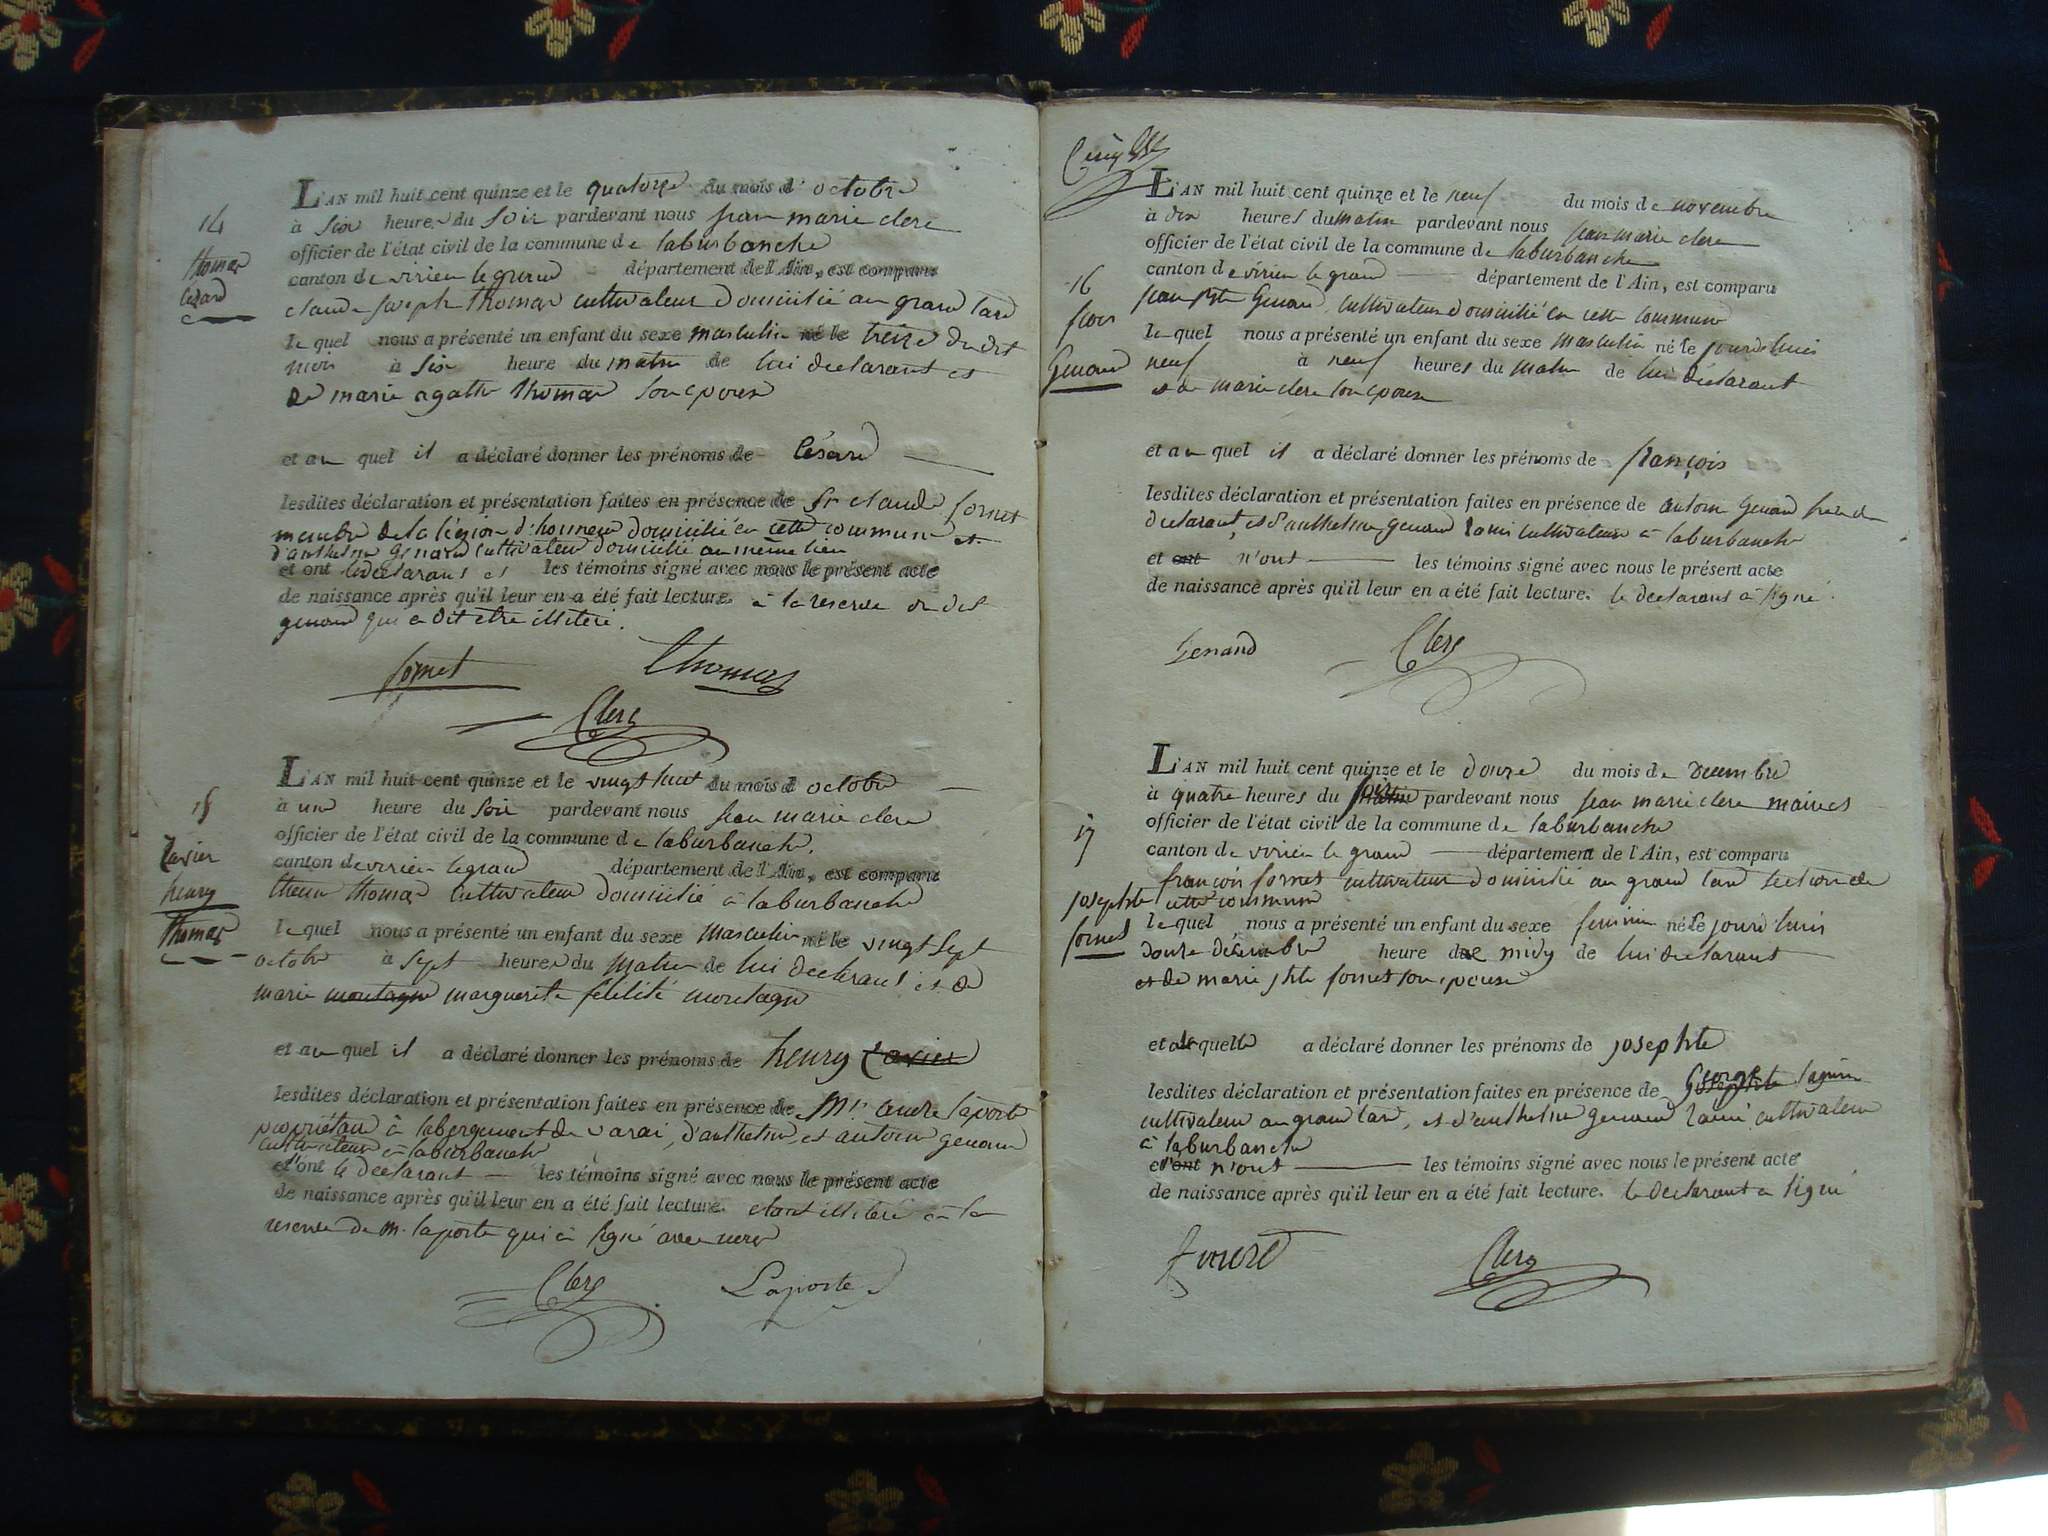 14
thomas
Césard
L'AN mil huit cent quinze et le quatorze du mois d'octobre
à six heure du soir pardevant nous jean marie clerc
officier de l'état civil de la commune de laburbanche
canton de virieu le grand département de l'Ain, est comparu
claude joseph thomas cultivateur domicilié au grand lard
le quel nous a présenté un enfant du sexe masculin né le treize du dit
mois à six heure du matin de lui declarant et
de marie agathe thomas son epouse
et au quel il a déclaré donner les prénoms de Césard
lesdites déclaration et présentation faites en présence de Sr claude fornet
membre de la légion d'honneur domicilié en cette commune et
d'anthelme genand cultivateur domicilié au même lieu
et ont le declarant et les témoins signé avec nous le présent acte
de naissance après qu'il leur en a été fait lecture. à la reserve du dit
genand qui a dit etre illiteré.
fornet thomas
Clerc
15
Xavier
henry
thomas
L'AN mil huit cent quinze et le vingt huit du mois d octobre
à une heure du soir pardevant nous jean marie clerc
officier de l'état civil de la commune de laburbanche.
canton de virieu legrand département de l'Ain, est comparu
thomas cultivateur domicilié à laburbanche
le quel nous a présenté un enfant du sexe masculin né le vingt sept
octobre à sept heures du matin de lui declarant et de
marie montagne marguerite felicité montagne
et au quel il a déclaré donner les prénoms de henry Xavier
lesdites déclaration et présentation faites en présence de Mr andre laporte
propriétaire à labergement de varai, d'anthelme et antoine genand
cultivateurs à laburbanche
et n'ont le declarant les témoins signé avec nous le présent acte
de naissance après qu'il leur en a été fait lecture. etant illiteré à la
reserve de M. laporte qui à signé avec nous
Clerc Laporte
L'AN mil huit cent quinze et le neuf du mois de novembre
à dix heures du matin pardevant nous jean marie clerc
officier de l'état civil de la commune de laburbanche
canton de virieu le grand département de l'Ain, est comparu
16
jean Bte Genand cultivateur domicilié en cette commune
fcois
le quel nous a présenté un enfant du sexe masculin né le jourd'huis
Genand
neuf à neuf heures du matin de lui déclarant
et de marie clerc son epouse
et au quel il a déclaré donner les prénoms de françois
lesdites déclaration et présentation faites en présence de antoine Genand frere du
declarant, et d'anthelme genand l'ainé cultivateurs à laburbanche
et ont n'ont les témoins signé avec nous le présent acte
de naissance après qu'il leur en a été fait lecture. le declarant à signé.
Genand Clerc
L'AN mil huit cent quinze et le douze du mois de decembre
à quatre heures du soir pardevant nous jean marie clerc maire et
officier de l'état civil de la commune de laburbanche
17
canton de virieu le grand département de l'Ain, est comparu
françois fornet cultivateur domicilié au grand lard section de
cette commune
josephte
fornet
le quel nous a présenté un enfant du sexe feminin né le jourd'huis
douze décembre heure de midy de lui declarant
et de marie jhte fornet son epouse
et a quelle a déclaré donner les prénoms de josephte
lesdites déclaration et présentation faites en présence de George
cultivateur au grand lard, et d'anthelme genand l'ainé cultivateur
à laburbanche
et ont n'ont les témoins signé avec nous le présent acte
de naissance après qu'il leur en a été fait lecture. le declarant a signé
Clerc